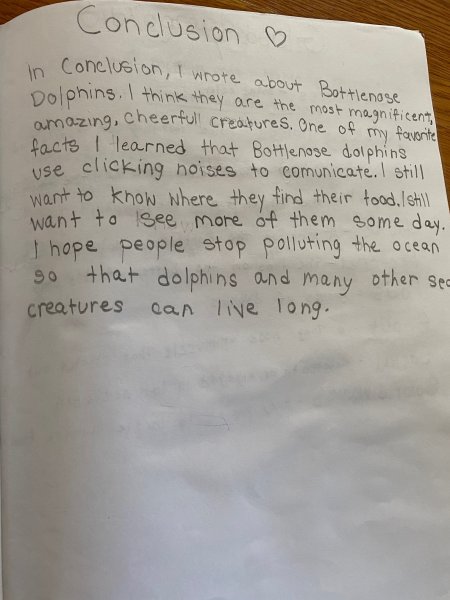 Conclusion ♡
In Conclusion, I wrote about Bottlenose
Dolphins. I think they are the most magnificent,
amazing, cheerful creatures. One of my favorite
facts I learned that Bottlenose dolphins
use clicking noises to comunicate. I still
want to know where they find their food. I still
want to see more of them some day.
I hope people stop polluting the ocean
so that dolphins and many other sea
creatures can live long.